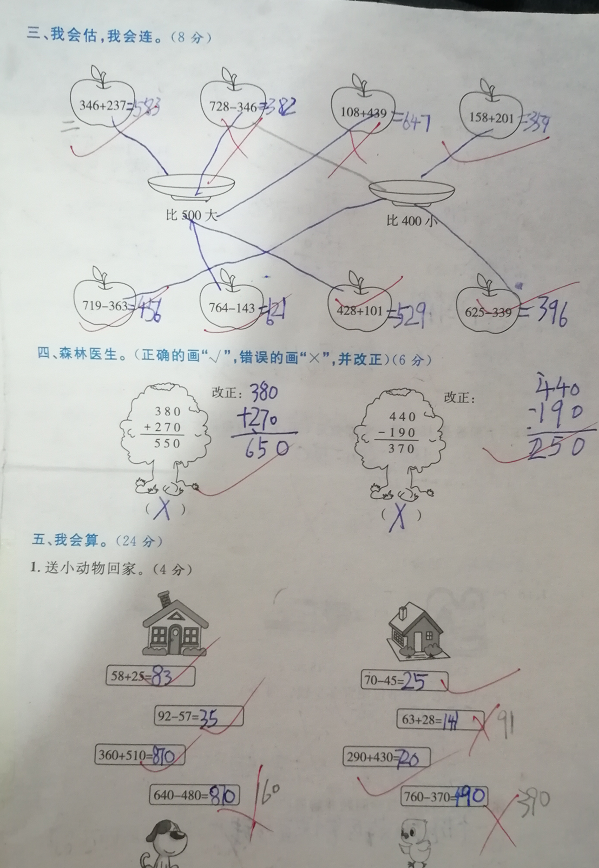 三、我会估,我会连。(8分)
346+237=583
728-346=382
108+439=647
158+201=359
比500大
比400小
719-363=456
764-143=621
428+101=529
625-339=396
四、森林医生。(正确的画“√”,错误的画“×”,并改正)(6分)
改正: 380
+270
650
380
+270
550
(X)
改正: 440
-190
250
440
-190
370
(X)
五、我会算。(24分)
1.送小动物回家。(4分)
58+25=83
70-45=25
92-57=35
63+28=141 91
360+510=870
290+430=720
640-480=810 160
760-370=490 390